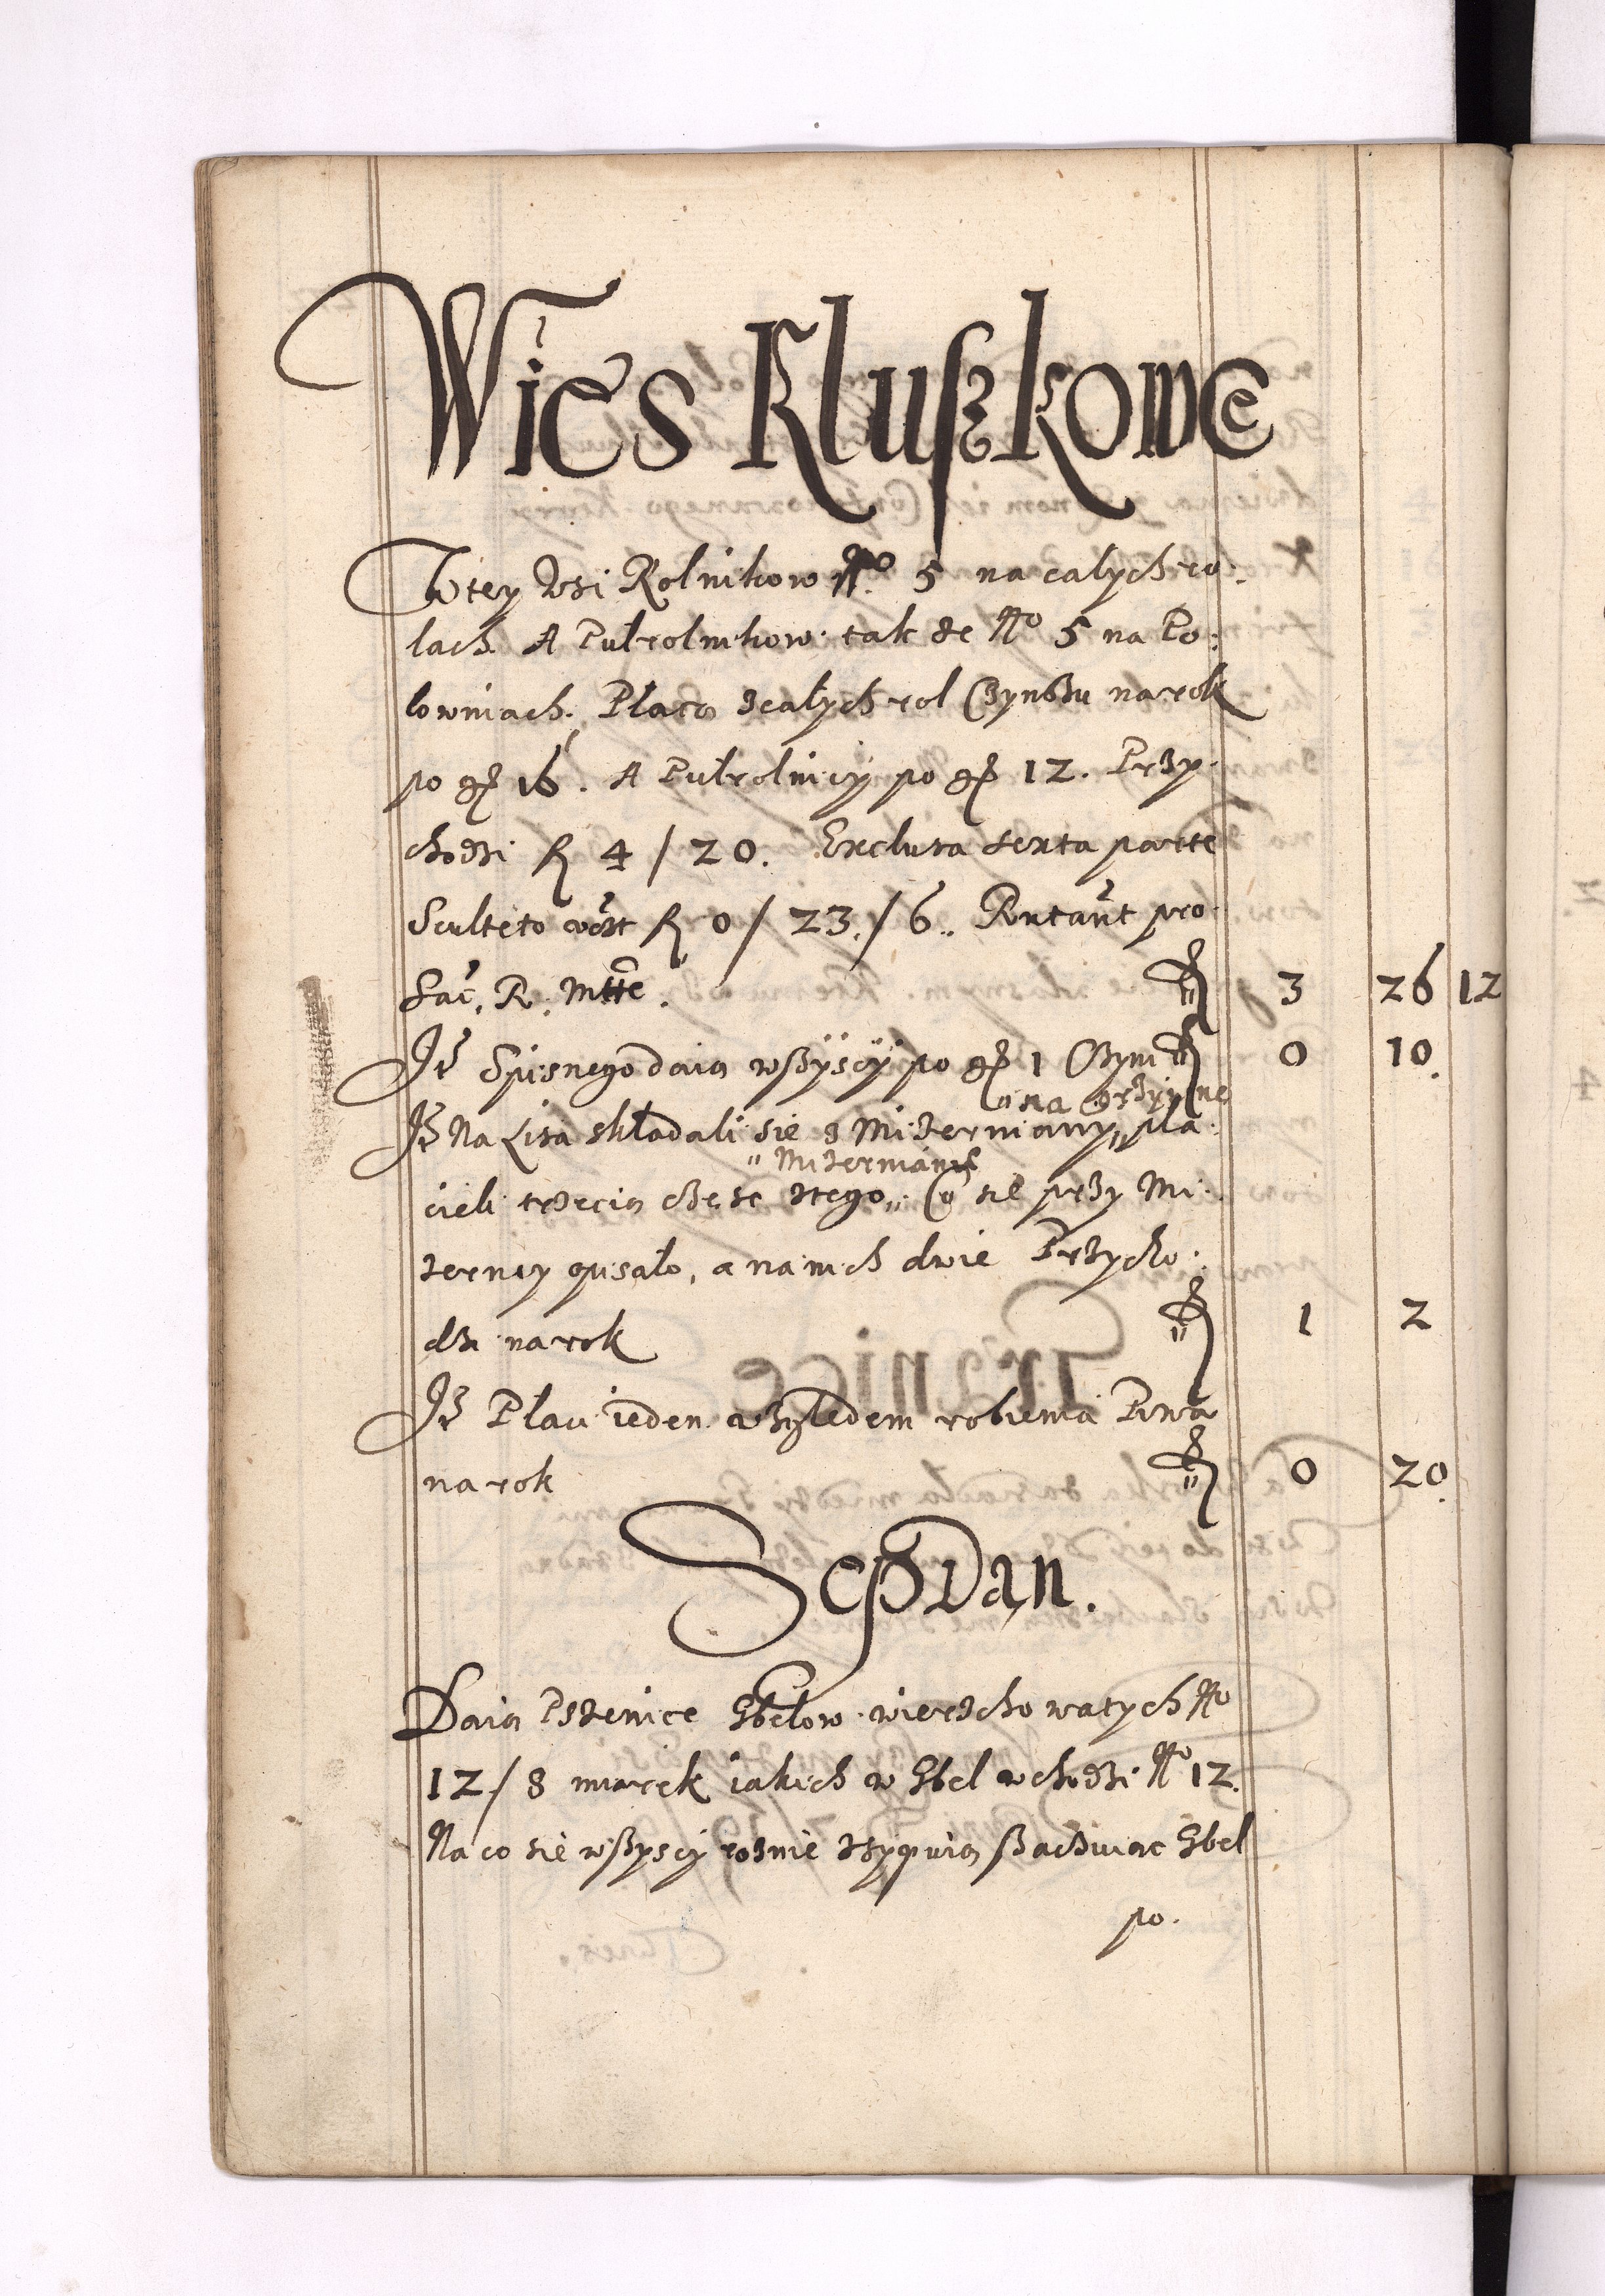 Wies Klußkowce
W tey Wsi Rolnikow No 5 na całych ro.
lach. A Pułrolnikow tak ze No 5 na Po.
łowniach. Płacą zcałych rol Czynszu na rok
po gr 16. A Pułrolnicy po gr 12. Przy.
chodzi fl 4 / 20. Exclusa sexta parte
Sculteto vēst fl 0 / 23. / 6. Portant pro
Sac. R. Mtte. fl 3 26 12
It Spisnego daią wßyscy po gr 1 Czyni fl 0 10.
" na Grzywne
It Na Lisa składali sie z Mizerniany " pła.
" Mizerniánie
cieli trzecią część ztego " Co się przy Mi.
zerney opisało, a na nich dwie Przycho.
dzi na rok fl 1 2
It Płaci ieden wzgledem robienia Piwa
na rok fl 0 20.
Seß Dan.
Daią Pszenice Gbełow wierzchowatych No
12 / 8 miarek iakich w Gbel wchodzi No 12.
Na co sie wßyscy rożnie zsypuią ßacuiąc Gbel
po.